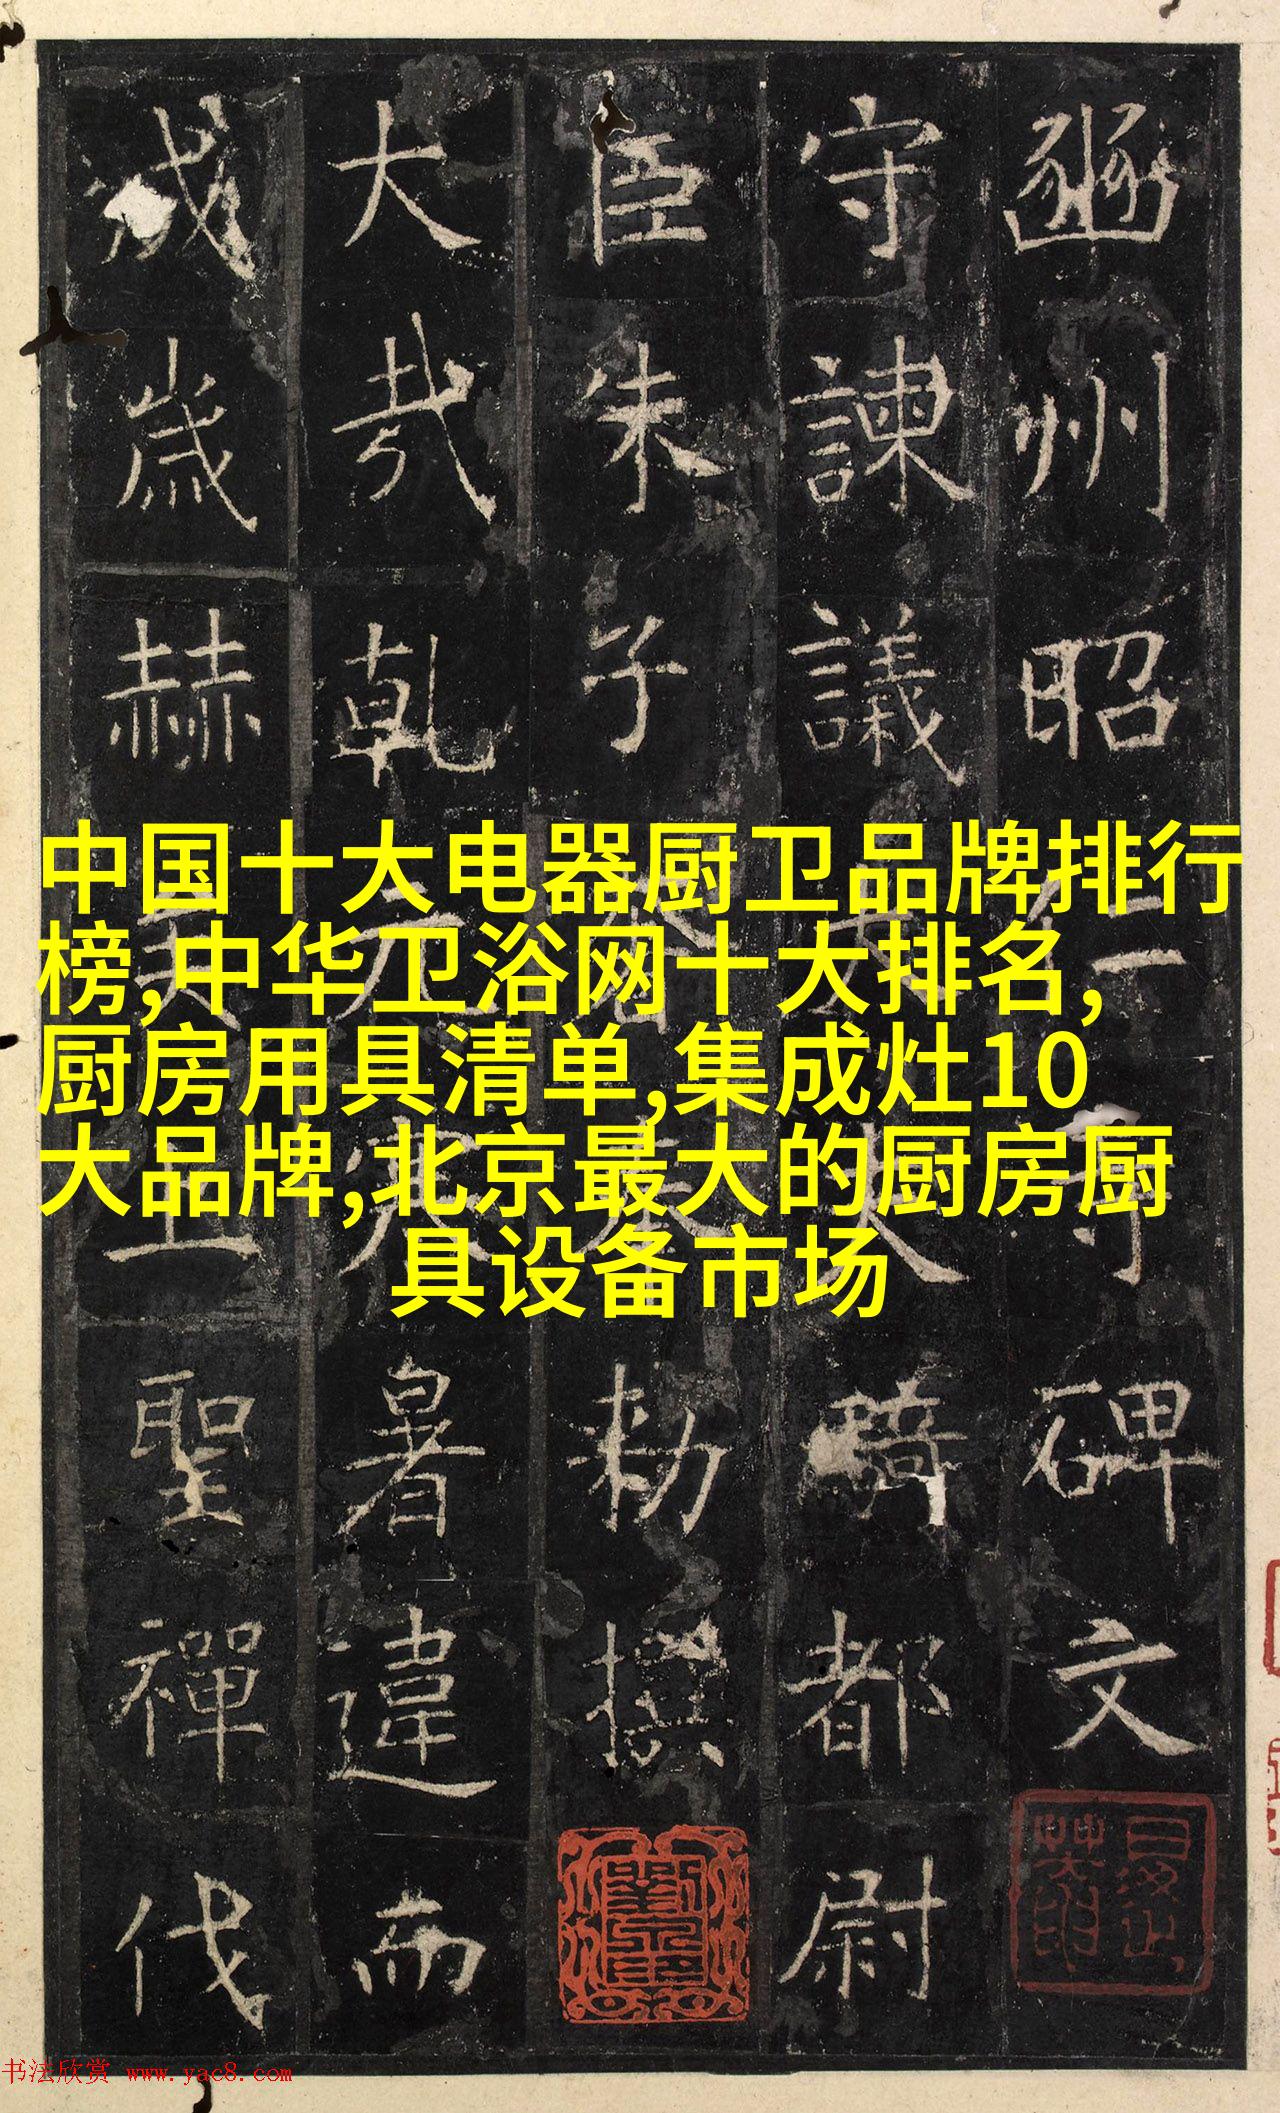 豳州昭仁寺碑文
守諫議大夫騎都尉
臣朱子奢奉勑撰
大哉乾元寒暑違而
成歲赫矣上聖禪代
中国十大电器厨卫品牌排行
榜,中华卫浴网十大排名,
厨房用具清单,集成灶10
大品牌,北京最大的厨房厨
具设备市场
书法欣赏 www.yac8.com